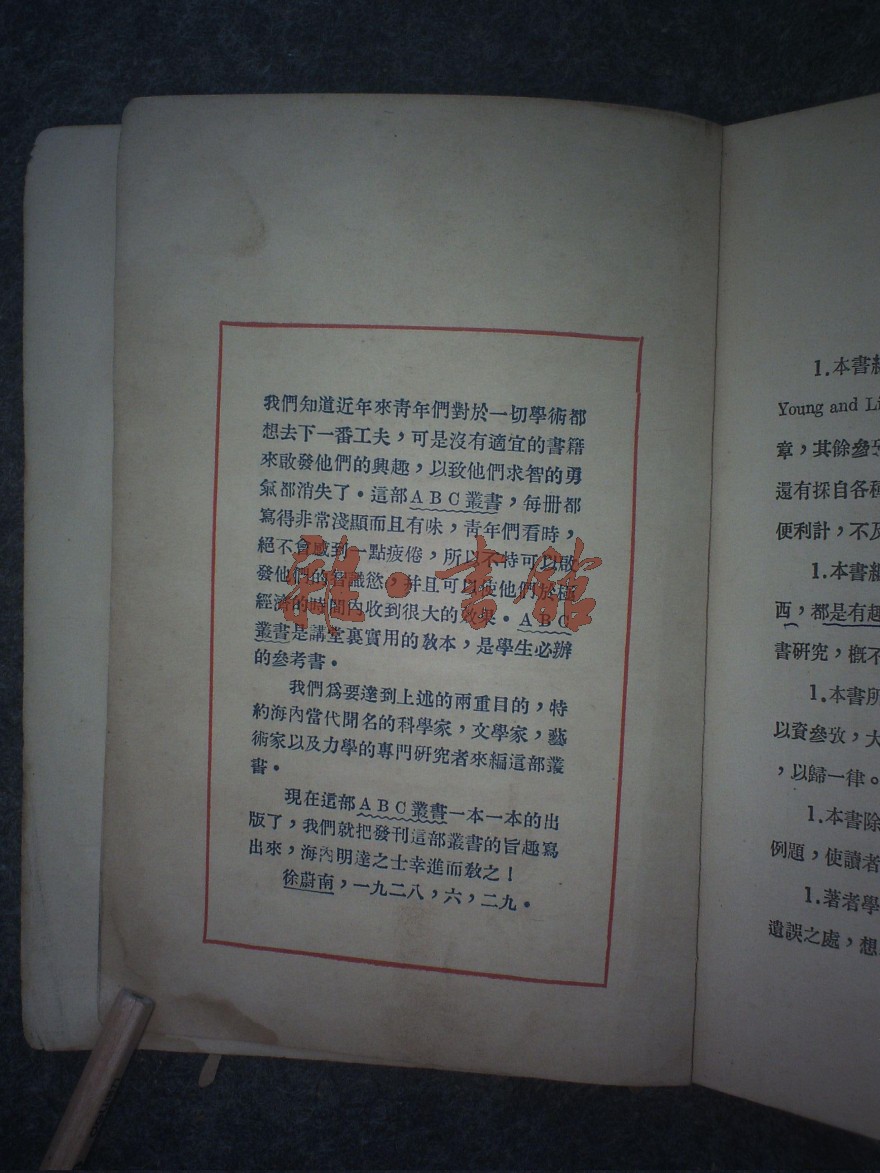 我們知道近年來靑年們對於一切學術都
想去下一番工夫，可是沒有適宜的書籍
來啟發他們的興趣，以致他們求智的勇
氣都消失了。這部ABC叢書，每册都
寫得非常淺顯而且有味，靑年們看時，
絕不會感到一點疲倦，所以不特可以啟
發他們的智識慾，幷且可以使他們於極
經濟的時間內收到很大的效果。ABC
叢書是講堂裏實用的敎本，是學生必辦
的參考書。
我們爲要達到上述的兩重目的，特
約海內當代聞名的科學家，文學家，藝
術家以及力學的專門硏究者來編這部叢
書。
現在這部ABC叢書一本一本的出
版了，我們就把發刊這部叢書的旨趣寫
出來，海內明達之士幸進而敎之！
徐蔚南，一九二八，六，二九。
雜·書館
1.本書
Young and
章，其餘參
還有採自各種
便利計，不及
1.本書編
西，都是有趣
書硏究，槪不
1.本書所
以資參攷，大
，以歸一律。
1.本書除
例題，使讀者
1.著者學
遺誤之處，想